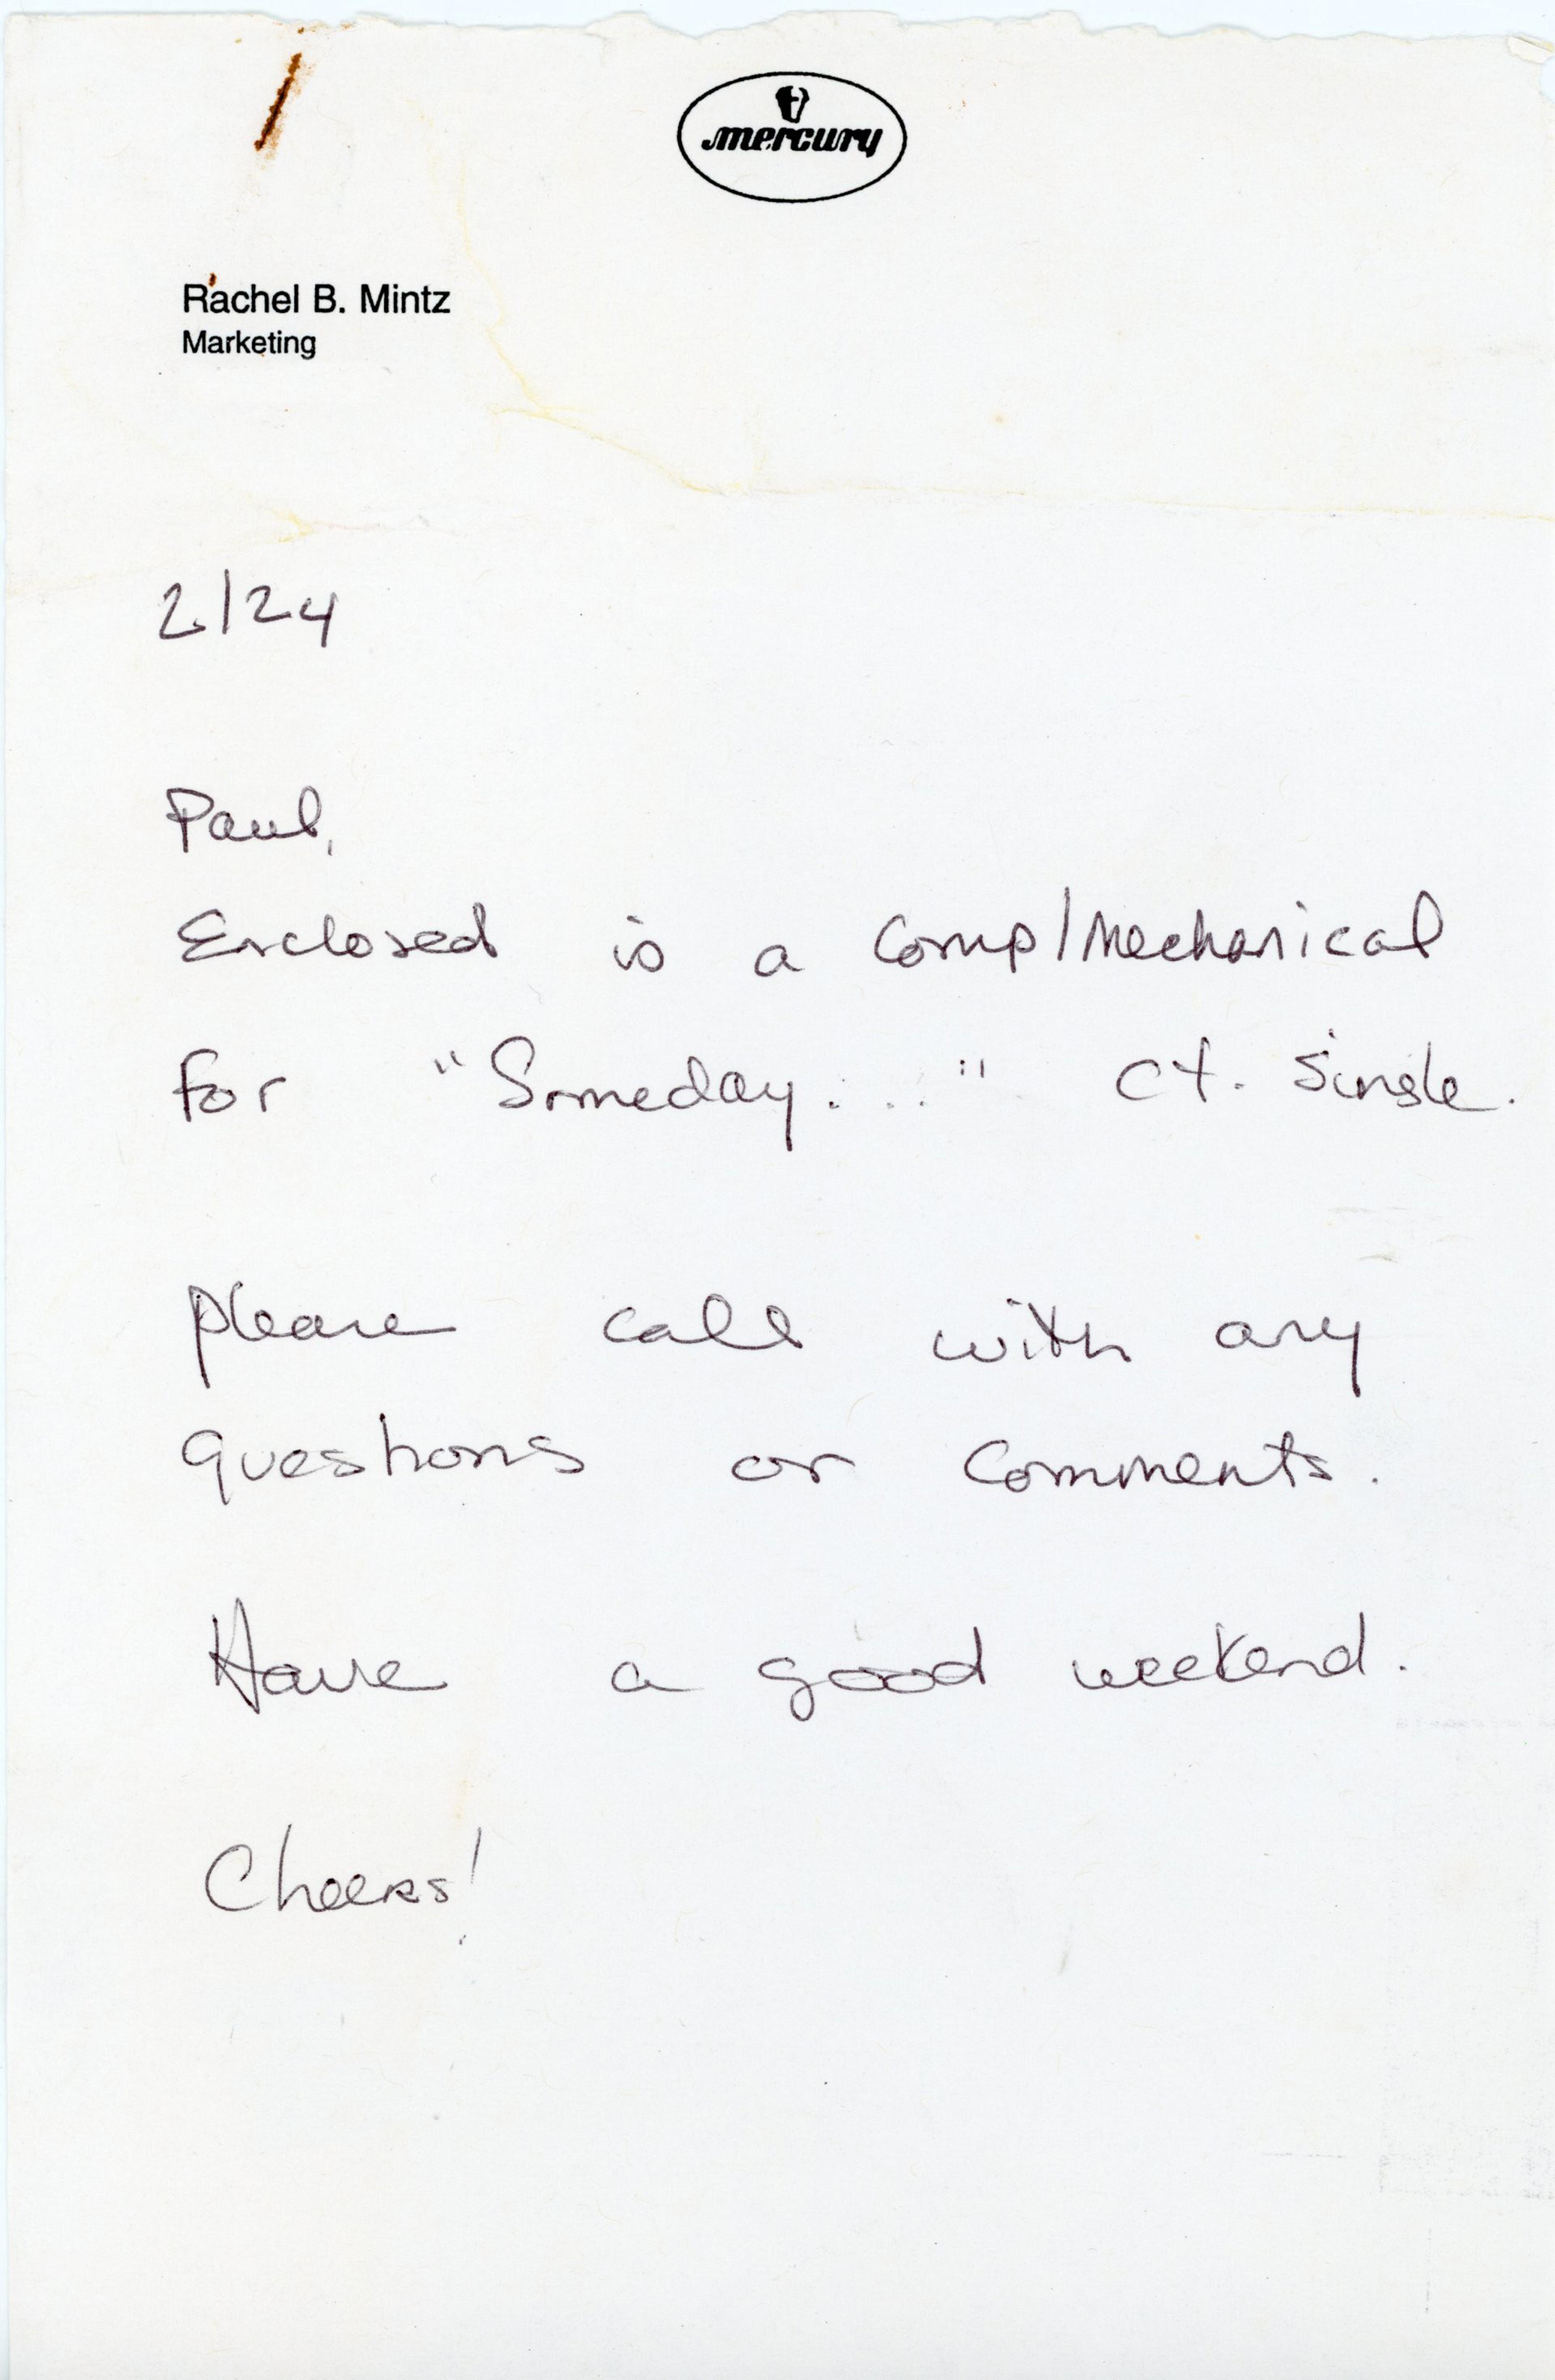 mercury
Rachel B. Mintz
Marketing
2/24
Paul,
Enclosed is a comp/mechanical
for "Someday..." CT. Single.
please call with any
questions or comments.
Have a good weekend.
Cheers!